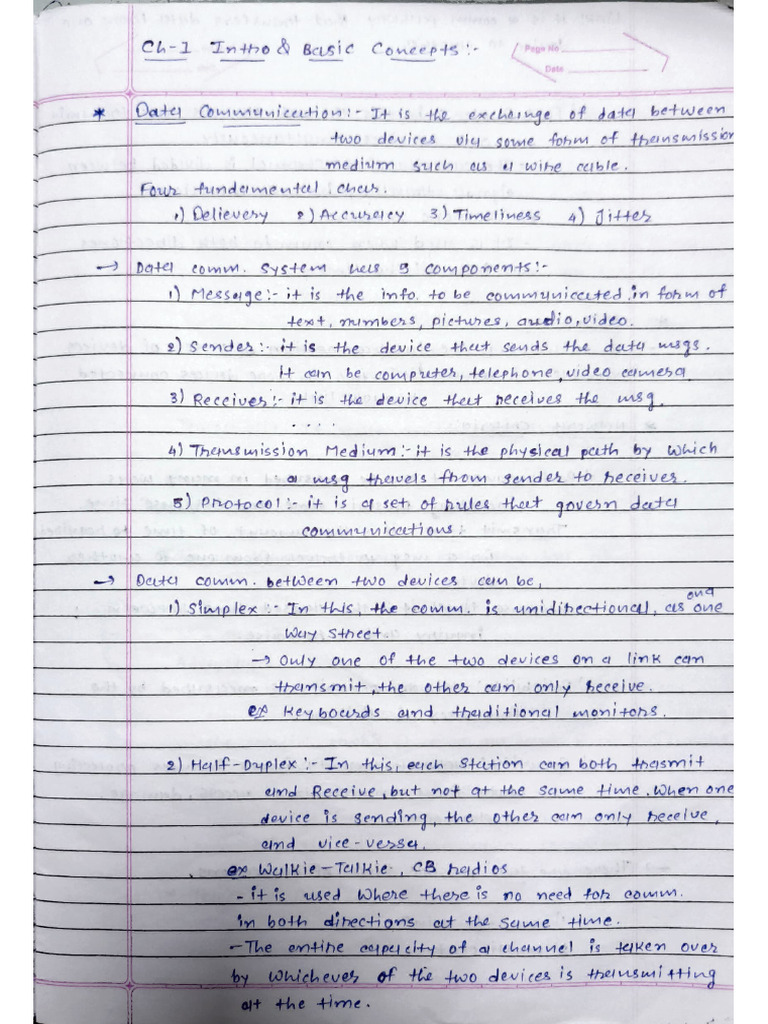 Ch-1 Intro & Basic Concepts :-
Page No
Date
* Data Communication :- It is the exchange of data between
two devices via some form of transmission
medium such as a wire cable.
Four fundamental char.
1) Delievery 2) Accuracy 3) Timeliness 4) Jitter
→ Data comm. system has 5 components :-
1) Message :- it is the info. to be communicated in form of
text, numbers, pictures, audio, video.
2) Sender :- it is the device that sends the data msgs.
It can be computer, telephone, video camera
3) Receiver :- it is the device that receives the msg.
. . . .
4) Transmission Medium :- it is the physical path by which
a msg travels from sender to receiver.
5) Protocol :- it is a set of rules that govern data
communications.
→ Data comm. between two devices can be,
1) Simplex :- In this, the comm. is unidirectional, as on a one
way street
→ Only one of the two devices on a link can
transmit, the other can only receive.
ex Keyboards and traditional monitors.
2) Half-Duplex :- In this, each station can both trasmit
and Receive, but not at the same time. When one
device is sending, the other can only receive,
and vice-versa.
ex Walkie-Talkie, CB radios
- it is used where there is no need for comm.
in both directions at the same time.
- The entire capacity of a channel is taken over
by whichever of the two devices is transmitting
at the time.